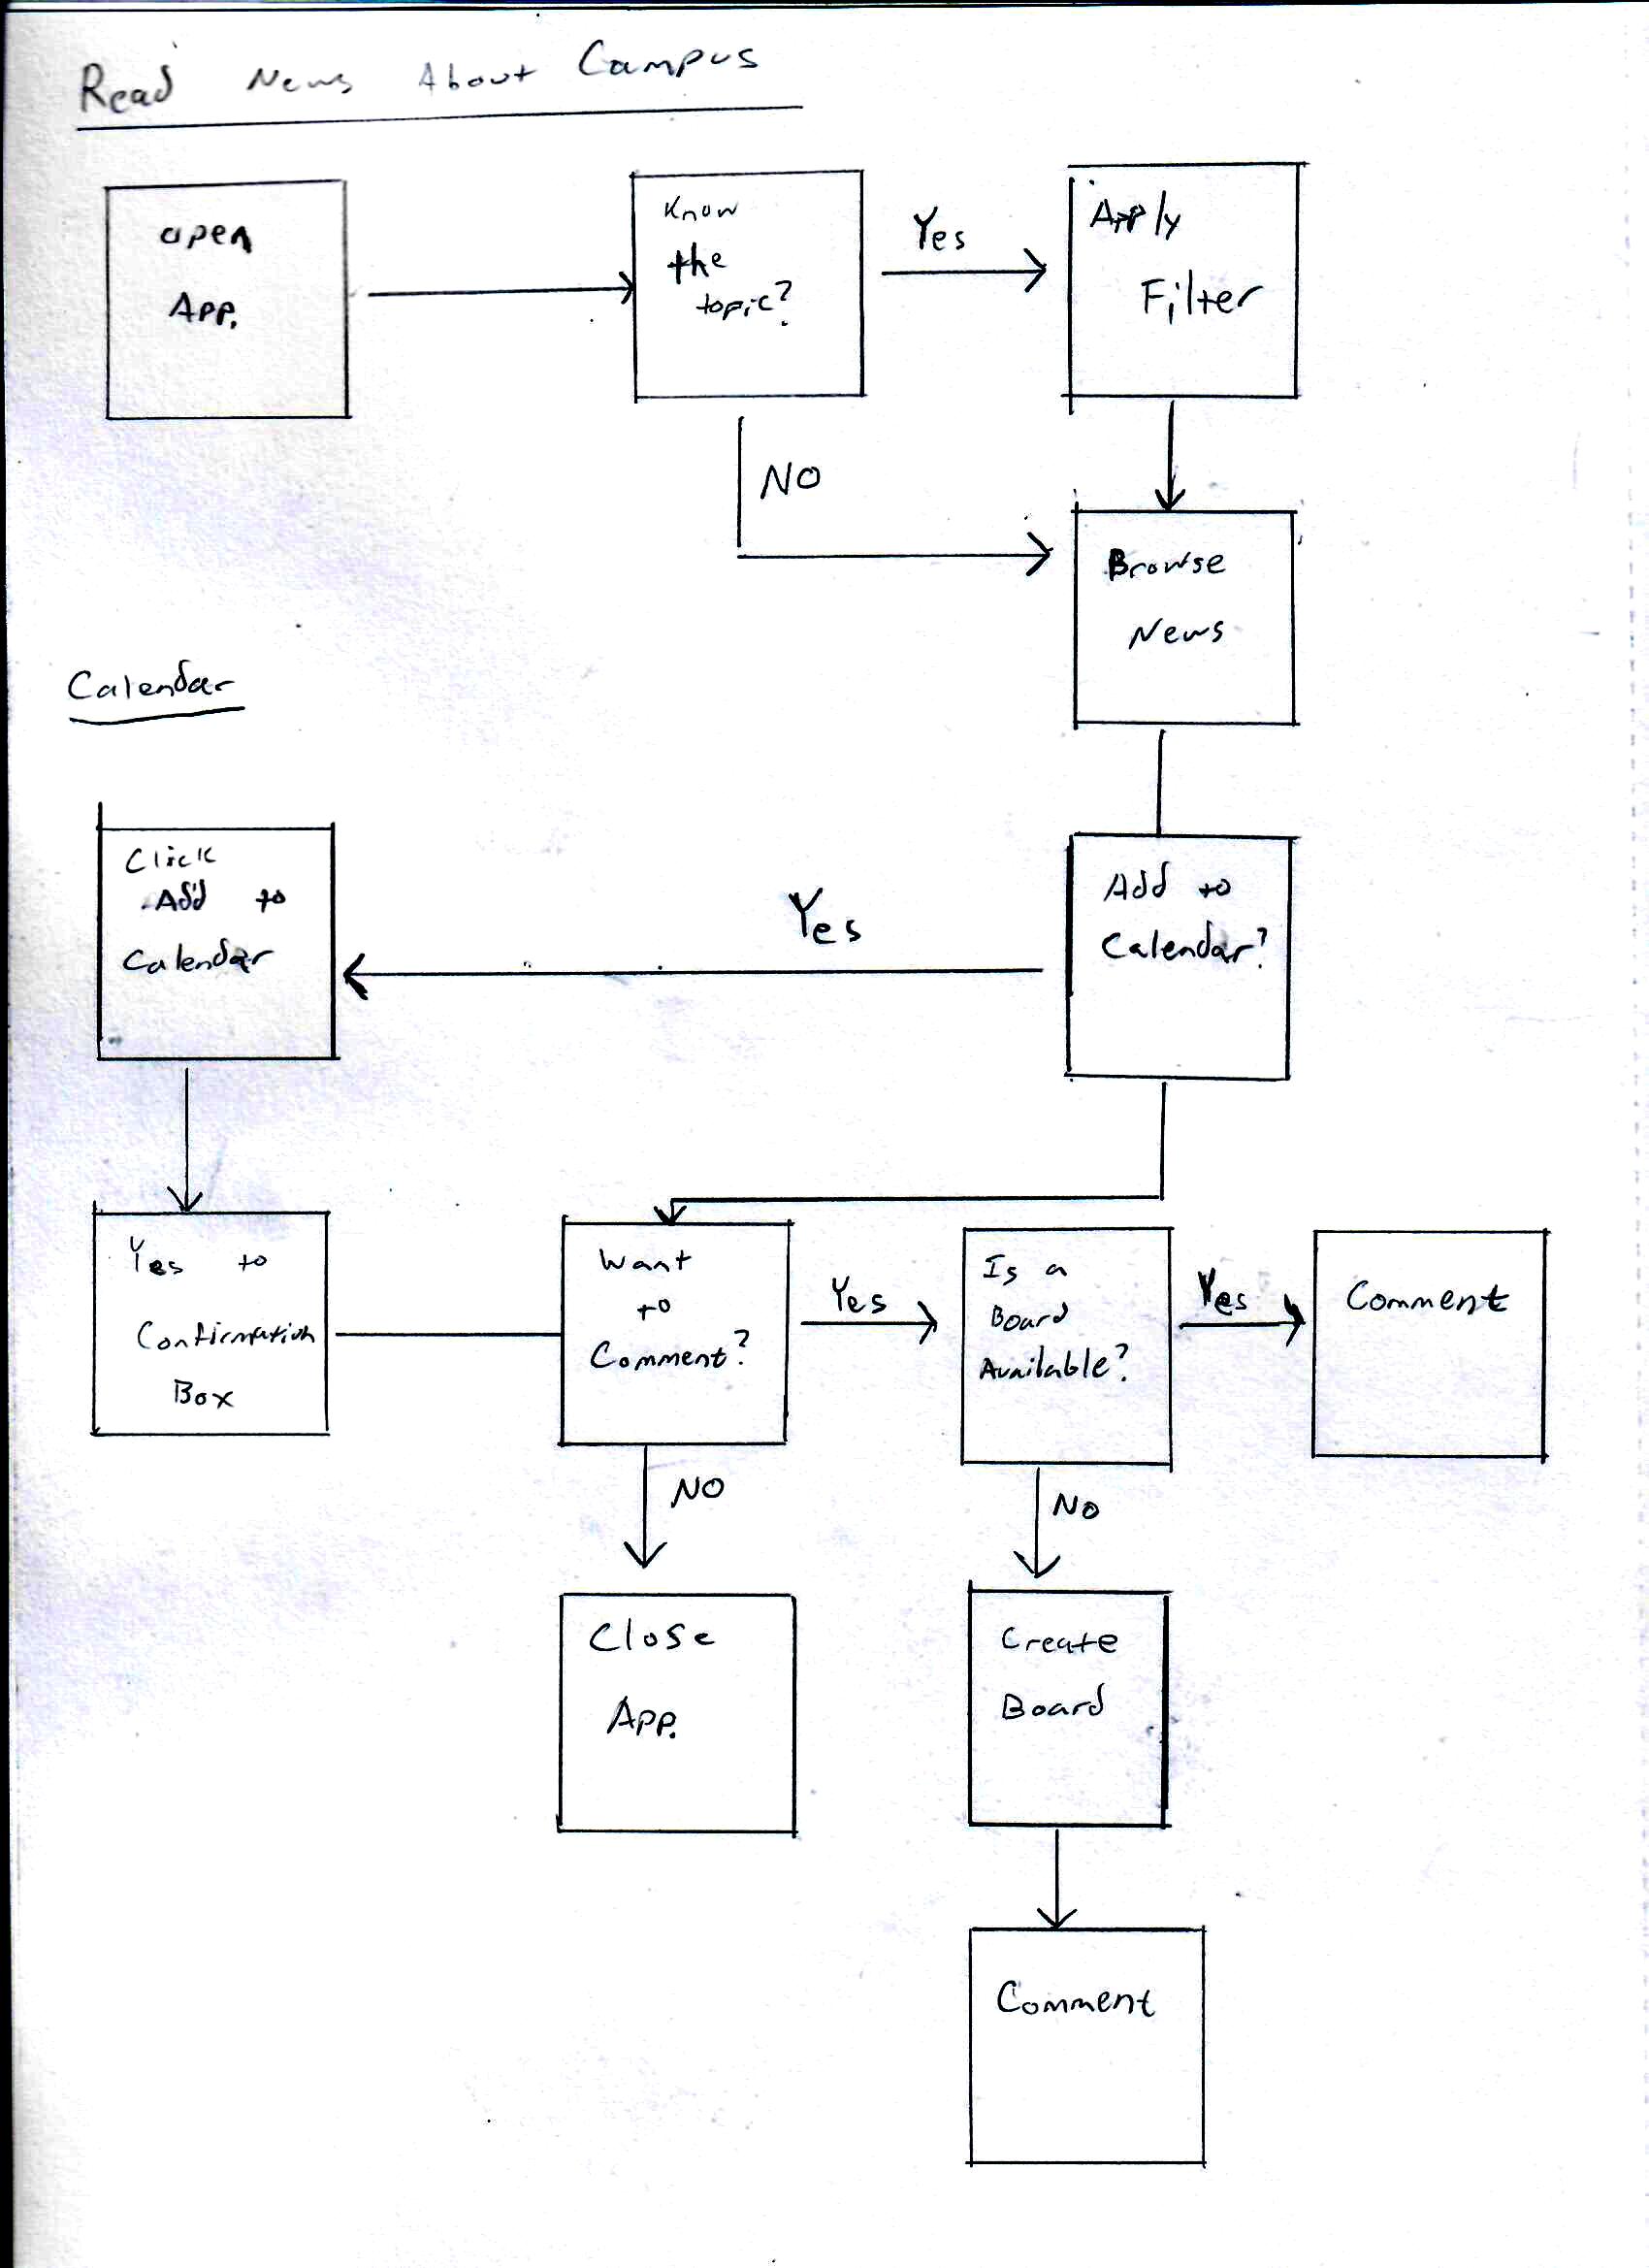 Read News About Campus
open
App.
Know
the
topic?
Yes
Apply
Filter
NO
Browse
News
Calendar
Click
Add to
Calendar
Yes
Add to
Calendar?
Yes to
Confirmation
Box
Want
to
Comment?
Yes
Is a
Board
Available?
Yes
Comment
NO
No
Close
App.
Create
Board
Comment